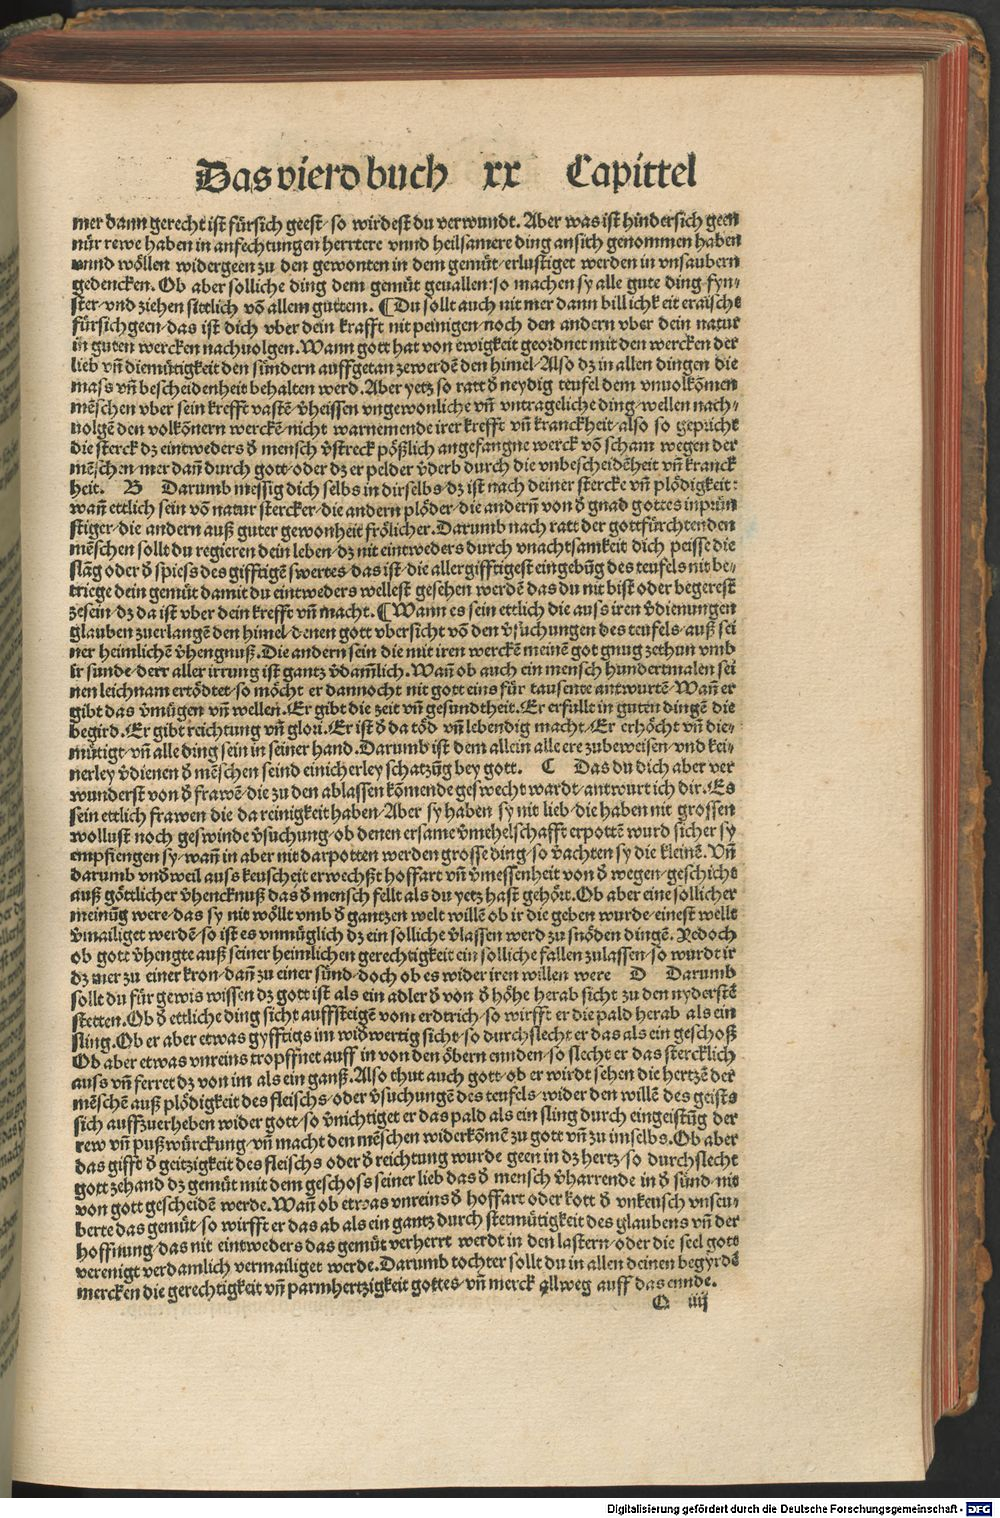 Das vierd buch xx Capittel
mer dann gerecht ist fürsich geest/ so wirdest du verwundt. Aber was ist hindersich geen
nür rewe haben in anfechtungen herrtere vnnd heilsamere ding an sich genommen haben
vnnd wöllen widergeen zu den gewonten in dem gemüt/ erlustiget werden in vnsaubern
gedencken. Ob aber solliche ding dem gemüt geuallen: so machen sy alle gute ding fyn⸗
ster/ vnd ziehen sittlich võ allem guttem. ❡ Du sollt auch nit mer dann billichkeit eraischt
fürsich geen/ das ist dich vber dein krafft nit peinigen/ noch den andern vber dein natur
in guten wercken nachuolgen. Wann gott hat von ewigkeit geordnet mit den wercken der
lieb vñ diemütigkeit den sündern auffgetan zewerdẽ den himel/ Also dz in allen dingen die
mass vñ bescheidenheit behalten werd. Aber yetz so ratt d̕ neydig teufel dem vnuolkõmen
mẽschen vber sein krefft vastẽ v̕heissen vngewonliche vñ vntrageliche ding/ wellen nach⸗
uolgẽ den volkõnern werckẽ/ nicht warnemende irer krefft vñ kranckheit/ also so gepricht
die sterck dz eintweders d̕ mensch v̕streck pößlich angefangne werck võ scham wegen der
mẽschen mer dañ durch gott/ oder dz er pelder v̕derb durch die vnbescheidẽheit vñ kranck
heit. B Darumb messig dich selbs in dir selbs/ dz ist nach deiner stercke vñ plödigkeit:
wañ ettlich sein võ natur stercker/ die andern plöder/ die anderñ von d̕ gnad gottes inprün
stiger/ die andern auß guter gewonheit frölicher. Darumb nach ratt der gottfürchtenden
mẽschen sollt du regieren dein leben/ dz nit eintweders durch vnachtsamkeit dich peisse die
slãg oder d̕ spiess des gifftigẽ swertes/ das ist/ die allergifftigest eingebũg des teufels nit be⸗
triege dein gemüt damit du eintweders wellest gesehen werdẽ das du nit bist oder begerest
zesein/ dz da ist vber dein krefft vñ macht. ❡ Wann es sein ettlich die auss iren v̕dienungen
glauben zuerlangẽ den himel/ denen gott vbersicht võ den v̕suchungen des teufels/ auß sei
ner heimlichẽ v̕hengnuß. Die andern sein die mit iren werckẽ meinẽ got gnug zethun vmb
ir sunde/ derr aller irrung ist gantz v̕dam̃lich. Wañ ob auch ein mensch hundertmalen sei
nen leichnam ertödtet/ so möcht er dannocht nit gott eins für tausente antwurtẽ/ Wañ er
gibt das v̕mügen vñ wellen. Er gibt die zeit vñ gesundtheit. Er erfullt in guten dingẽ die
begird. Er gibt reichtung vñ glori. Er ist d̕ da töd vñ lebendig macht/ Er erhöcht vñ die⸗
mütigt/ vñ alle ding sein in seiner hand. Darumb ist dem allein alle ere zubeweisen/ vnd kei⸗
nerley v̕dienen d̕ mẽschen seind einicherley schatzũg bey gott. C Das du dich aber ver
wunderst von d̕ frawẽ/ die zu den ablassen kõmende geswecht wardt/ antwurt ich dir. Es
sein ettlich frawen die da reinigkeit haben/ Aber sy haben sy nit lieb/ die haben nit grossen
wollust noch geswinde v̕suchung/ ob denen ersame v̕mehelschafft erpottẽ wurd sicher sy
empfiengen sy/ wañ in aber nit darpotten werden grosse ding/ so v̕achten sy die kleinẽ. Vñ
darumb vnd̕weil auss keuscheit erwechßt hoffart vñ v̕messenheit von d̕ wegen/ geschicht
auß göttlicher v̕hencknuß das d̕ mensch fellt als du yetz hast gehört. Ob aber eine sollicher
meinũg were/ das sy nit wöllt vmb d̕ gantzen welt willẽ ob ir die geben wurde/ einest wellt
v̕mailiget werdẽ/ so ist es vnmüglich dz ein solliche v̕lassen werd zu snöden dingẽ. Yedoch
ob gott v̕hengte auß seiner heimlichen gerechtigkeit ein solliche fallen zulassen/ so wurdt ir
dz mer zu einer kron/ dañ zu einer sünd/ doch ob es wider iren willen were D Darumb
sollt du für gewis wissen dz gott ist als ein adler d̕ von d̕ höhe herab sicht zu den nyderstẽ
stetten. Ob d̕ ettliche ding sicht auffsteigẽ vom erdtrich/ so wirfft er die pald herab als ein
sling. Ob er aber etwas gyfftigs im wid̕wertig sicht/ so durchslecht er das als ein geschoß
Ob aber etwas vnreins tropffnet auff in von den öbern ennden/ so slecht er das stercklich
auss vñ ferret dz von im als ein ganß. Also thut auch gott/ ob er wirdt sehen die hertzẽ der
mẽschẽ auß plödigkeit des fleischs/ oder v̕suchungẽ des teufels/ wider den willẽ des geists
sich auffzuerheben wider gott/ so v̕nichtiget er das pald als ein sling durch eingeistũg der
rew vñ pußwürckung/ vñ macht den mẽschen widerkõmẽ zu gott vñ zu im selbs. Ob aber
das gifft d̕ geitzigkeit des fleischs oder d̕ reichtung wurde geen in dz hertz/ so durchslecht
gott zehand dz gemüt mit dem geschoss seiner lieb das d̕ mensch v̕harrende in d̕ sünd/ nit
von gott gescheidẽ werde. Wañ ob etwas vnreins d̕ hoffart oder kott d̕ vnkeusch vnseu⸗
berte das gemüt/ so wirfft er das ab als ein gantz durch stetmütigkeit des glaubens vñ der
hoffnung/ das nit eintweders das gemüt verherrt werdt in den lastern/ oder die seel gott
verenigt verdamlich vermailiget werde. Darumb tochter sollt du in allen deinen begyrdẽ
mercken die gerechtigkeit vñ parmhertzigkeit gottes/ vñ merck allweg auff das ennde.
Q iiij
Digitalisierung gefördert durch die Deutsche Forschungsgemeinschaft - DFG